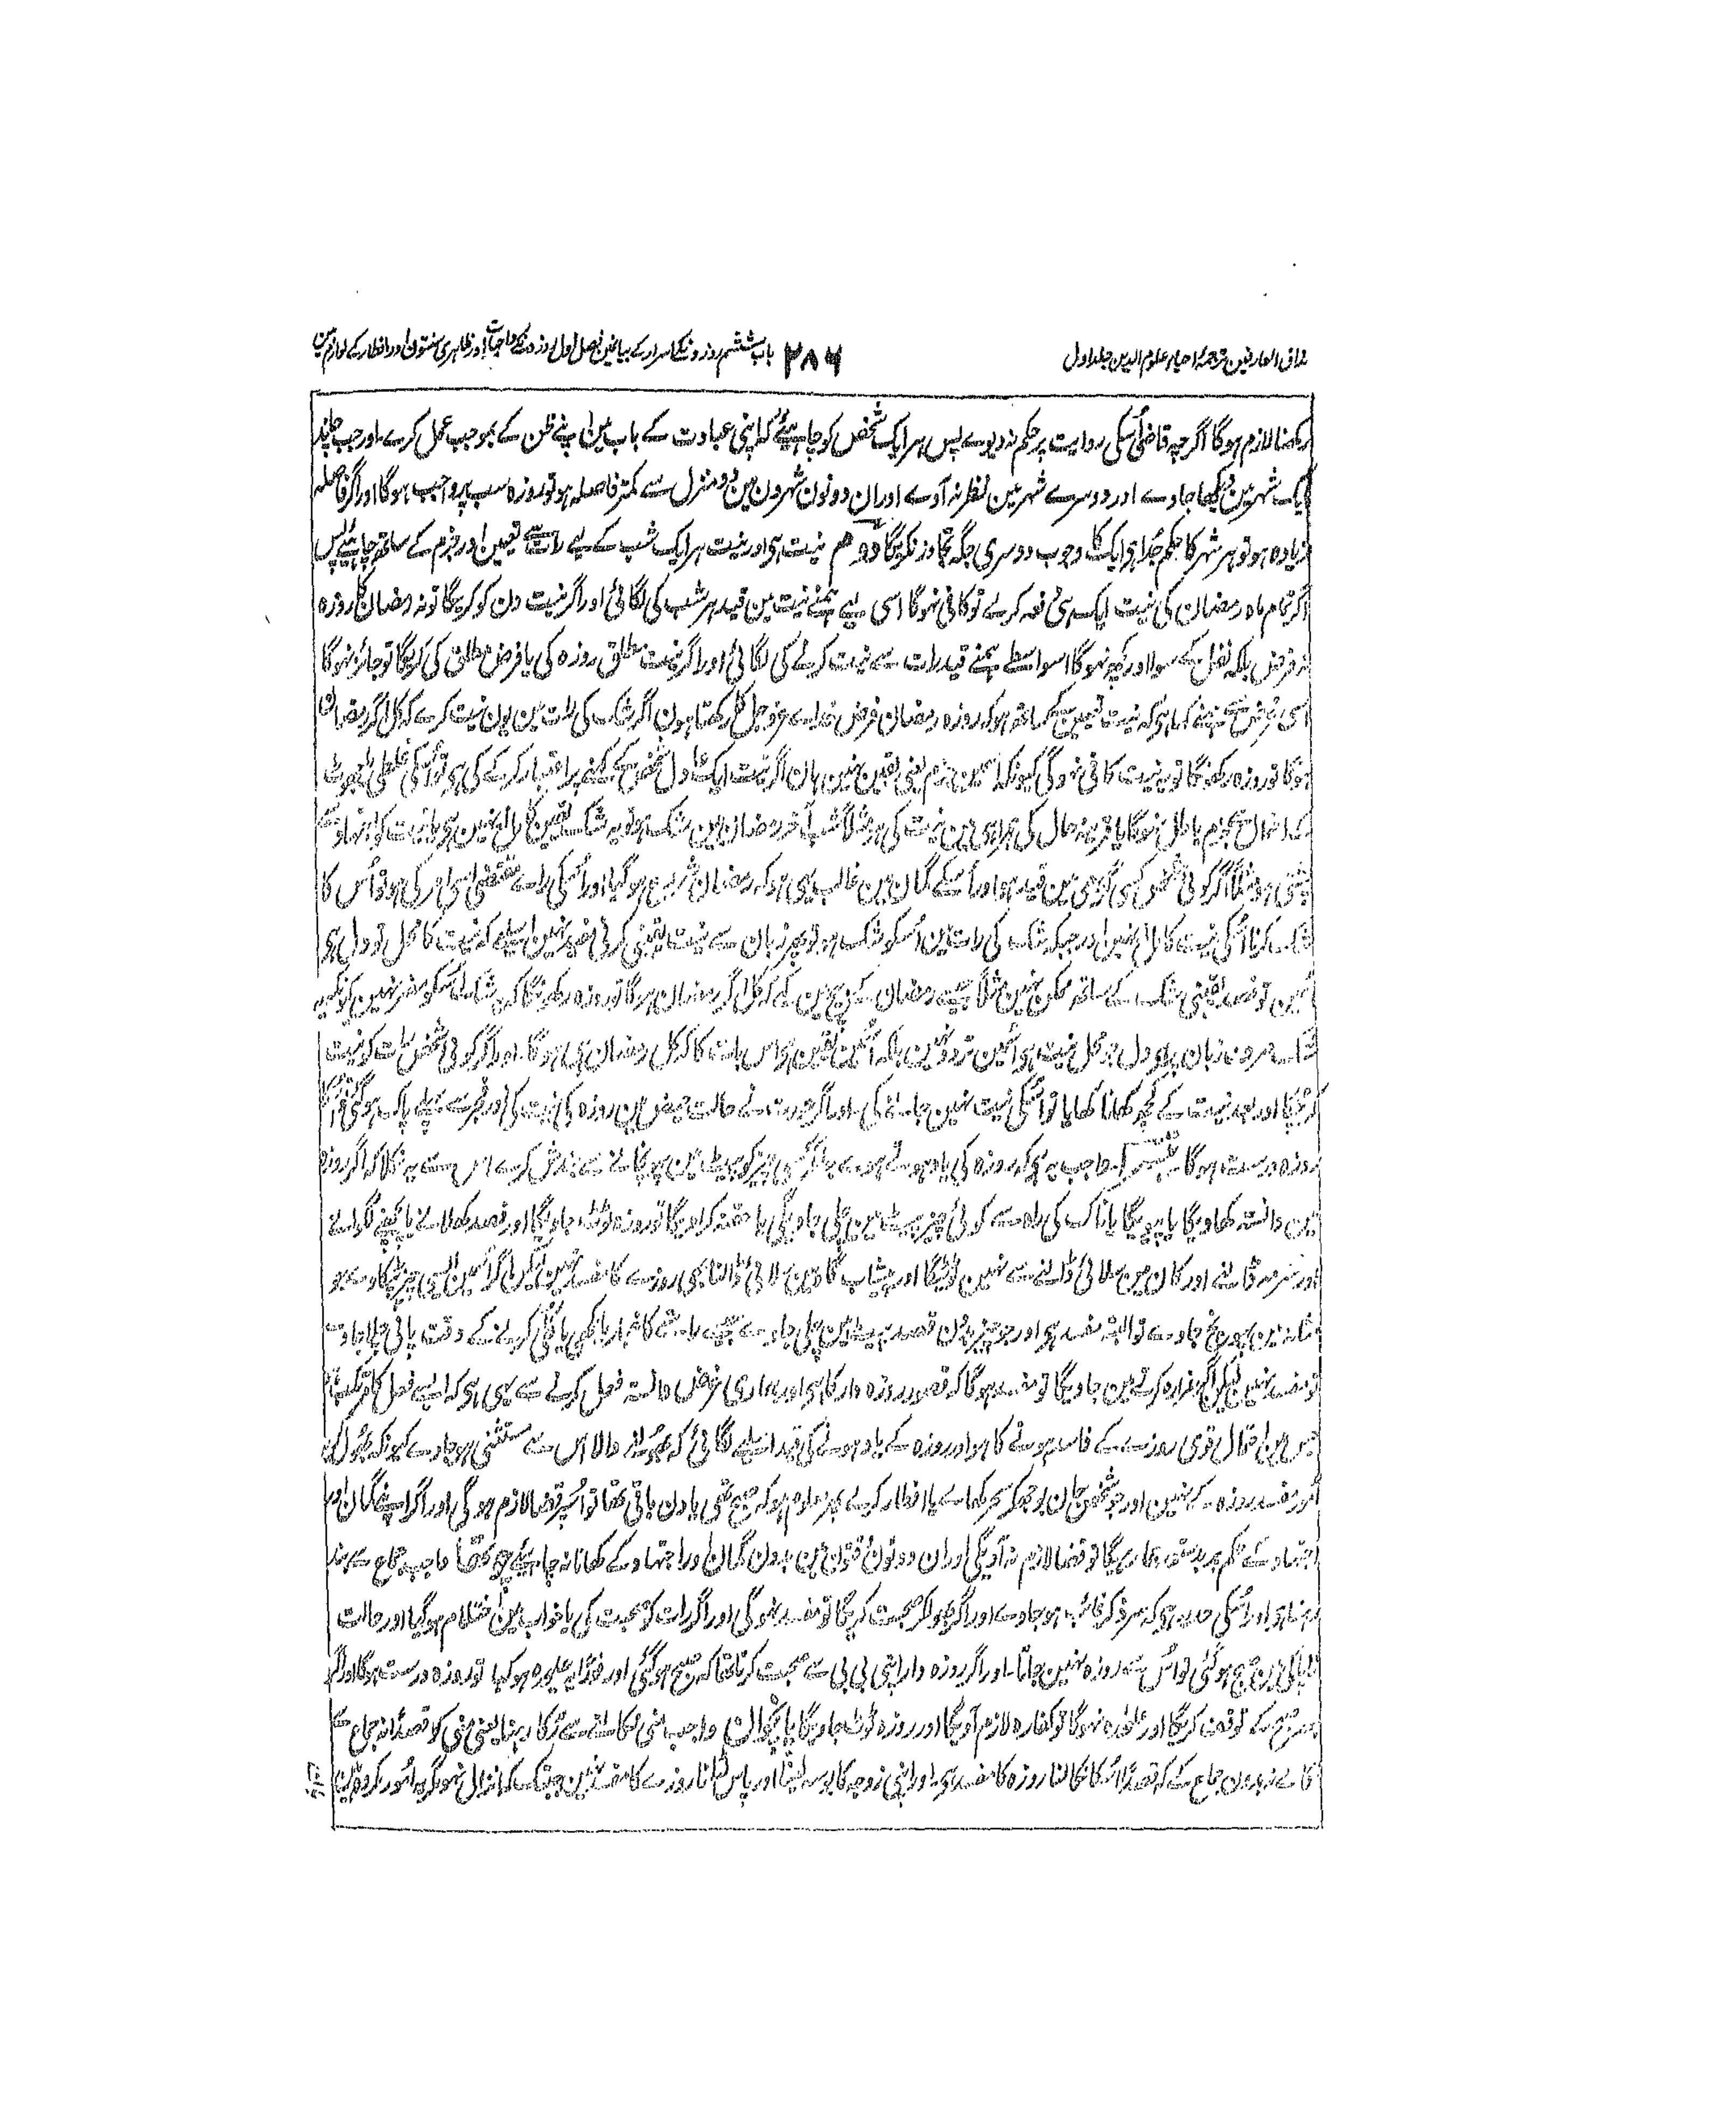 مذاق العارفین ترجمۂ احیاء علوم الدین جلد اول
۲۸۶
باب ششم روزونکے اسرار کے بیانمین فصل اول روزہ کے واجبات اور ظاہری سنتون اور افطار کے لوازم مین
رکھنا لازم ہوگا اگرچہ قاضی اُسکی روایت پر حکم نہ دیوے پس ہر ایک شخص کو چاہیئے کہ اپنی عبادت کے باب مین اپنے ظن کے بموجب عمل کرے اور جب چاند
ایک شہر مین دیکھا جاوے اور دوسرے شہر مین نظر نہ آوے اور ان دونون شہرون مین دو منزل سے کمتر فاصلہ ہو تو روزہ سب پر واجب ہوگا اور اگر فاصلہ
زیادہ ہو تو ہر شہر کا حکم جُدا ہی ایک کا وجوب دوسری جگہ تجاوز نکریگا دوم نیت ہی اور نیت ہر ایک شب کے لیے رات سے تعیین اور جزم کے ساتھ چاہیئے پس
اگر تمام ماہ رمضان کی نیت ایک ہی دفعہ کرلے تو کافی نہوگا اسی لیے ہمنے نیت مین قید ہر شب کی لگائی اور اگر نیت دن کو کریگا تو نہ رمضان کا روزہ
نہ فرض بلکہ نفل کے سوا اور کچھ نہوگا اسواسطے ہمنے قید رات سے نیت کرنے کی لگائی اور اگر نیت مطلق روزہ کی یا فرض مطلق کی کریگا تو جائز نہوگا
اسی غرض سے ہمنے کہا ہی کہ نیت تعیین کے ساتھ ہو کہ روزہ رمضان فرض خداے عزوجل کل رکھتا ہون اگر شک کی رات مین یون نیت کرے کہ کل اگر رمضان
ہوگا تو روزہ رکھونگا تو یہ نیت کافی نہوگی کیونکہ اسمین جزم یعنی یقین نہین ہان اگر نیت ایک عادل شخص کے کہنے پر اعتبار کرکے کی ہو تو اُسکی غلطی یا جھوٹ
کے احتمال سے جزم باطل نہوگا یا قرینہ حال کی ہمراہی مین نیت کی ہو مثلاً شب آخر رمضان مین شک ہو تو یہ شک یقین کا مزاحم نہین ہی یا نیت کو اجتہاد سے
مبنی ہو مثلاً اگر کوئی شخص کسی کوٹھری مین قید ہو اور اُسکے گمان مین غالب یہی ہو کہ رمضان شروع ہوگیا اور اُسکی راے مقتضی اسی امر کی ہو تو اُس کا
شک کرنا اُسکی نیت کا مانع نہین اور جبکہ شک کی رات مین اُسکو شک ہو تو پھر زبان سے نیت یقینی کرنی مفید نہین اسلیے کہ نیت کا محل تو دل ہی
اُسمین تو قصد یقینی شک کے ساتھ ممکن نہین مثلاً جیسے رمضان کے بیچ مین کہے کہ کل اگر رمضان ہوگا تو روزہ رکھونگا کہ یہ شک اُسکو مضر نہین کیونکہ یہ
شک صرف زبان پر ہی دل جو محل نیت ہی اُسمین تردد نہین بلکہ اُسمین یقین ہی اس بات کا کہ کل رمضان ہی ہوگا۔ اور اگر کوئی شخص رات کو نیت
کر چکا اور بعد نیت کے کچھ کھانا کھایا تو اُسکی نیت نہین جانے کی۔ اور اگر عورت نے حالت حیض مین روزہ کی نیت کی اور فجر سے پہلے پاک ہوگئی تو اُسکا
روزہ درست ہوگا تیسرا واجب یہ ہی کہ روزہ کی یاد ہوتے ہوے باہر کسی چیز کو پیٹ مین پہونچانے سے بندش کرے اس سے یہ نکلا کہ اگر روزہ
مین دانستہ کھاویگا یا پیویگا یا ناک کی راہ سے کوئی چیز پیٹ مین چلی جاویگی یا حقنہ کراویگا تو روزہ ٹوٹ جاویگا اور فصد کھلانے یا پچھنے لگوانے
اور سرمہ ڈالنے اور کان مین سلائی ڈالنے سے نہین ٹوٹیگا اور پیشاب گاہ مین سلائی ڈالنا بھی روزے کا مفسد نہین لیکن اگر اُسمین ایسی چیز ٹپکاوے جو
مثانہ مین پہونچ جاوے تو البتہ مفسد ہی اور جو چیز بدون قصد پیٹ مین چلی جاوے جیسے راستے کا غبار یا مکھی یا کلی کرنے کے وقت پانی چلا جاوے
تو مفسد نہین لیکن اگر غرارہ کرنے مین جاویگا تو مفسد ہوگا کہ قصور روزہ دار کا ہی اور ہماری غرض دانستہ فعل کرنے سے یہی ہی کہ ایسے فعل کا مرتکب ہو
جس مین احتمال قوی روزے کے فاسد ہونے کا ہو اور روزہ کے یاد ہونے کی قید اسلیے لگائی کہ بھولنے والا اس سے مستثنی ہو جاوے کیونکہ بھول کر
امور مفسد روزہ کے نہین اور جو شخص جان بوجھکر سحر کھاے یا افطار کرے پھر معلوم ہو کہ صبح تھی یا دن باقی تھا تو اُسپر قضا لازم ہوگی اور اگر اپنے گمان اور
اجتہاد کے حکم پر بدستور جما رہیگا تو قضا لازم نہ آویگی اور ان دونون وقتون مین بدون گمان اور اجتہاد کے کھانا نہ چاہیئے چوتھا واجب جماع سے بند
رہنا ہی اور اُسکی حد یہ ہی کہ سر ذکر غائب ہو جاوے اور اگر بھولکر صحبت کریگا تو مفسد نہوگی اور اگر رات کو صحبت کی یا خواب مین احتلام ہوگیا اور حالت
ناپاکی مین صبح ہوگئی تو اُس سے روزہ نہین جاتا۔ اور اگر روزہ دار اپنی بی بی سے صحبت کرتا تھا کہ صبح ہوگئی اور فوراً علیحدہ ہوگیا تو روزہ درست ہوگا اور اگر
بعد صبح کے توقف کریگا اور علیحدہ نہوگا تو کفارہ لازم آویگا اور روزہ ٹوٹ جاویگا پانچوان واجب منی نکالنے سے رُکا رہنا یعنی منی کو قصداً نہ جماع سے
نکالے نہ بدون جماع کے کہ قصداً اُسکا نکالنا روزہ کا مفسد ہی اور اپنی زوجہ کا بوسہ لینا اور پاس لٹانا روزے کا مفسد نہین جبتک کہ انزال نہو مگر یہ امور مکروہ ہین